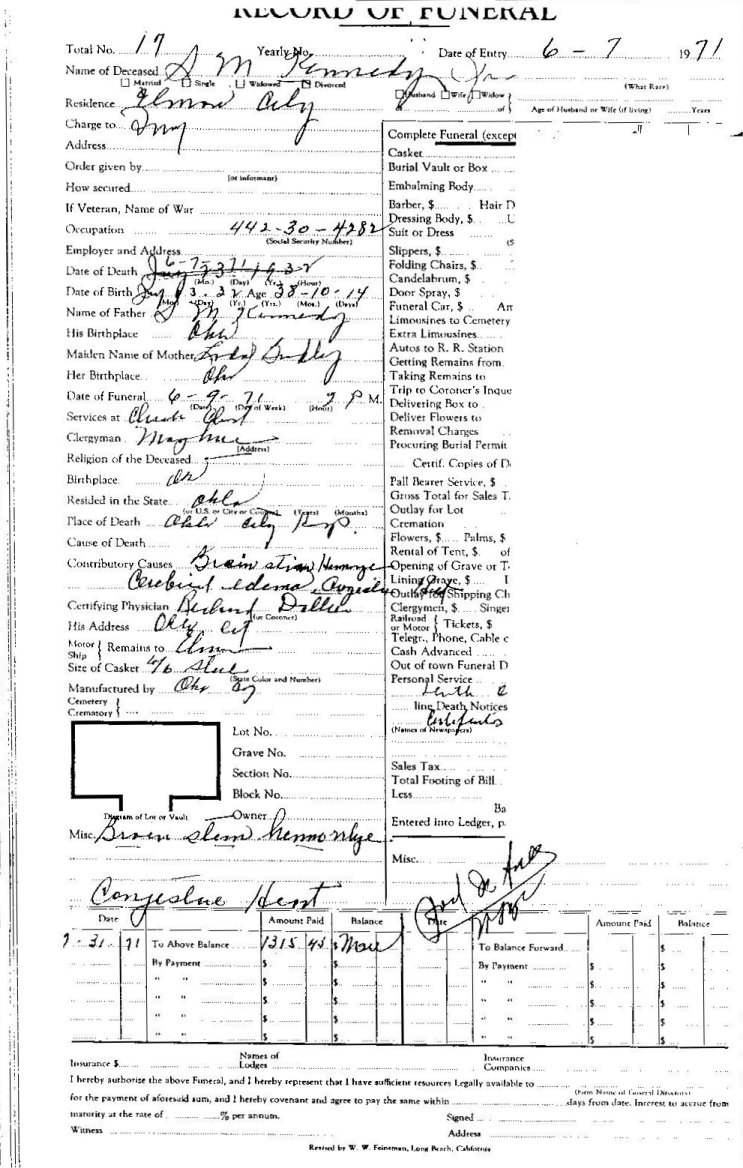 RECORD OF FUNERAL
Total No. 17 Yearly No. Date of Entry 6 - 7 1971
Name of Deceased S M Kennedy Jr
Married Single Widowed Divorced Husband Wife Widow (What Race)
Residence Elmore City of Age of Husband or Wife (if living) Years
Charge to
Address
Order given by
(or informant)
How secured
If Veteran, Name of War
Occupation 442-30-4282
(Social Security Number)
Employer and Address
Date of Death 6-7-71
(Mo.) (Day) (Yr.) (Hour)
Date of Birth 3. 32 Age 38-10-14
(Mo.) (Day) (Yr.) (Yrs.) (Mos.) (Days)
Name of Father S M Kennedy
His Birthplace Okla
Maiden Name of Mother
Her Birthplace
Date of Funeral 6-9-71 2 P.M.
(Date) (Day of Week) (Hour)
Services at Church Christ
Clergyman
(Address)
Religion of the Deceased
Birthplace
Resided in the State Okla
(or U.S. or City or County) (Years) (Months)
Place of Death Okla City
Cause of Death
Contributory Causes Brain stem Hemorrage
Cerebral edema,
Certifying Physician Richard
(or Coroner)
His Address
Motor Ship Remains to Elmore
Size of Casket 6/6 Steel
(State Color and Number)
Manufactured by
Cemetery
Crematory
Lot No.
Grave No.
Section No.
Block No.
Diagram of Lot or Vault Owner
Misc. Brain stem hemorrhge
Congestive Heart
Complete Funeral (except
Casket
Burial Vault or Box
Embalming Body
Barber, $ Hair D
Dressing Body, $ U
Suit or Dress
(S
Slippers, $
Folding Chairs, $
Candelabrum, $
Door Spray, $
Funeral Car, $ Am
Limousines to Cemetery
Extra Limousines
Autos to R. R. Station
Getting Remains from
Taking Remains to
Trip to Coroner's Inque
Delivering Box to
Deliver Flowers to
Removal Charges
Procuring Burial Permit
Certif. Copies of D
Pall Bearer Service, $
Gross Total for Sales T
Outlay for Lot
Cremation
Flowers, $ Palms, $
Rental of Tent, $ of
Opening of Grave or T
Lining Grave, $
Outlay for Shipping Ch
Clergymen, $ Singer
Railroad or Motor Tickets, $
Telegr., Phone, Cable c
Cash Advanced
Out of town Funeral D
Personal Service
line Death Notices
(Names of Newspapers)
Sales Tax
Total Footing of Bill
Less
Ba
Entered into Ledger, p.
Misc.
Date Amount Paid Balance Date Amount Paid Balance
7-31-71 To Above Balance 1315 45 $ To Balance Forward $
By Payment $ $ By Payment $ $
" " $ $ " " $ $
" " $ $ " " $ $
" " $ $ " " $ $
" " $ $ " " $ $
Insurance $ Names of Lodges Insurance Companies
I hereby authorize the above Funeral, and I hereby represent that I have sufficient resources Legally available to
(Firm Name of Funeral Directors)
for the payment of aforesaid sum, and I hereby covenant and agree to pay the same within days from date. Interest to accrue from
maturity at the rate of % per annum. Signed
Witness Address
Revised by W. W. Feineman, Long Beach, California